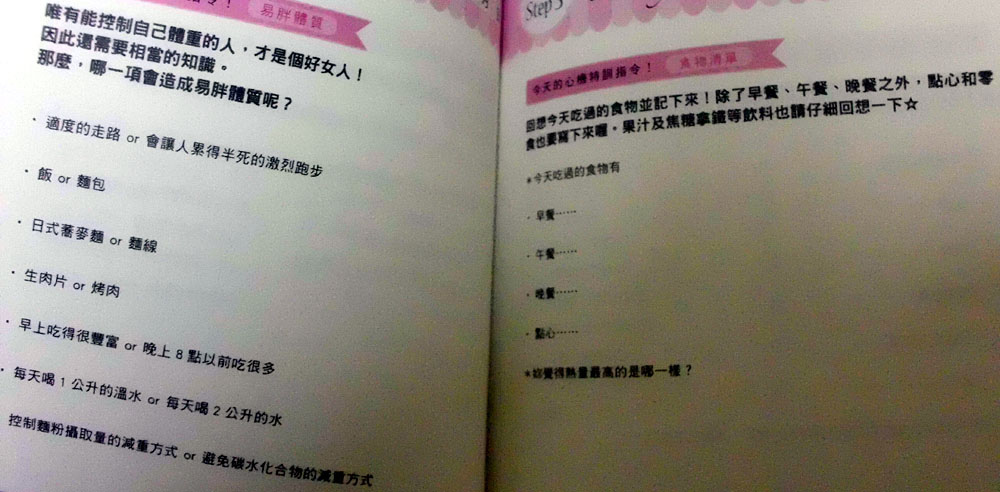 指令！ 易胖體質
唯有能控制自己體重的人，才是個好女人！
因此還需要相當的知識。
那麼，哪一項會造成易胖體質呢？
・適度的走路 or 會讓人累得半死的激烈跑步
・飯 or 麵包
・日式蕎麥麵 or 麵線
・生肉片 or 烤肉
・早上吃得很豐富 or 晚上 8 點以前吃很多
・每天喝 1 公升的溫水 or 每天喝 2 公升的水
控制麵粉攝取量的減重方式 or 避免碳水化合物的減重方式
Step 3
今天的心機特訓指令！ 食物清單
回想今天吃過的食物並記下來！除了早餐、午餐、晚餐之外，點心和零
食也要寫下來喔。果汁及焦糖拿鐵等飲料也請仔細回想一下☆
*今天吃過的食物有
・早餐……
・午餐……
・晚餐……
・點心……
*妳覺得熱量最高的是哪一樣？